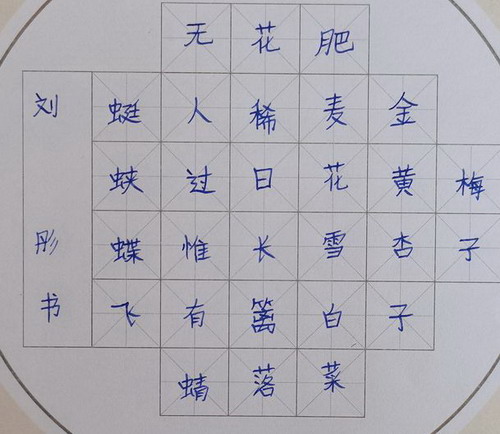 梅子
金黄杏子
肥麦花雪白菜
花稀日长篱落
无人过惟有蜻
蜓蛱蝶飞
刘彤书